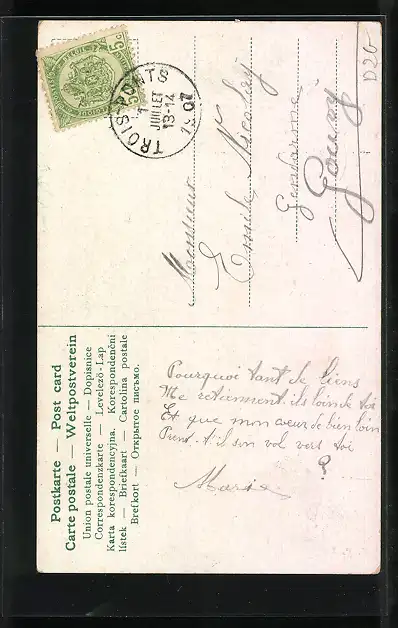 5c
BELGIE
TROIS-PONTS
1 JUILLET
13-14
1907
D20
Monsieur
Emile Nicolaÿ
Gendarme
Gouvy
Postkarte — Post card
Carte postale — Weltpostverein
Union postale universelle — Dopisnice
Correspondenzkarte — Levelező-Lap
Karta korespondencyjna. Korespondenční
lístek — Briefkaart — Cartolina postale
Brefkort — Открытое письмо.
Pourquoi tant de liens
Me retiennent ils loin de toi
Et que mon cœur de bien loin
Prend-t-il son vol vers toi
?
Maria